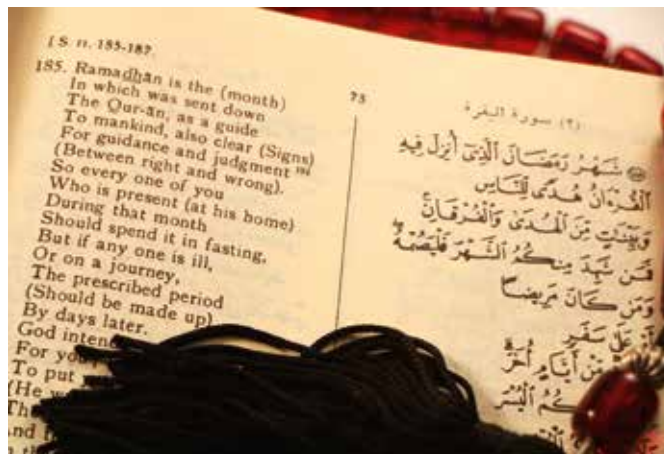 [ S. II. 185-187
185. Ramadhān is the (month)
In which was sent down
The Qur-ān, as a guide
To mankind, also clear (Signs)
For guidance and judgment 194
(Between right and wrong).
So every one of you
Who is present (at his home)
During that month
Should spend it in fasting,
But if any one is ill,
Or on a journey,
The prescribed period
(Should be made up)
By days later.
God
For
To put
(He
75
(٢) سورة البقرة
شَهْرُ رَمَضَانَ ٱلَّذِىٓ أُنزِلَ فِيهِ
ٱلْقُرْءَانُ هُدًى لِّلنَّاسِ
وَبَيِّنَـٰتٍ مِّنَ ٱلْهُدَىٰ وَٱلْفُرْقَانِ
فَمَن شَهِدَ مِنكُمُ ٱلشَّهْرَ فَلْيَصُمْهُ
وَمَن كَانَ مَرِيضًا
أَوْ عَلَىٰ سَفَرٍ
مِّنْ أَيَّامٍ أُخَرَ
ٱلْيُسْرَ